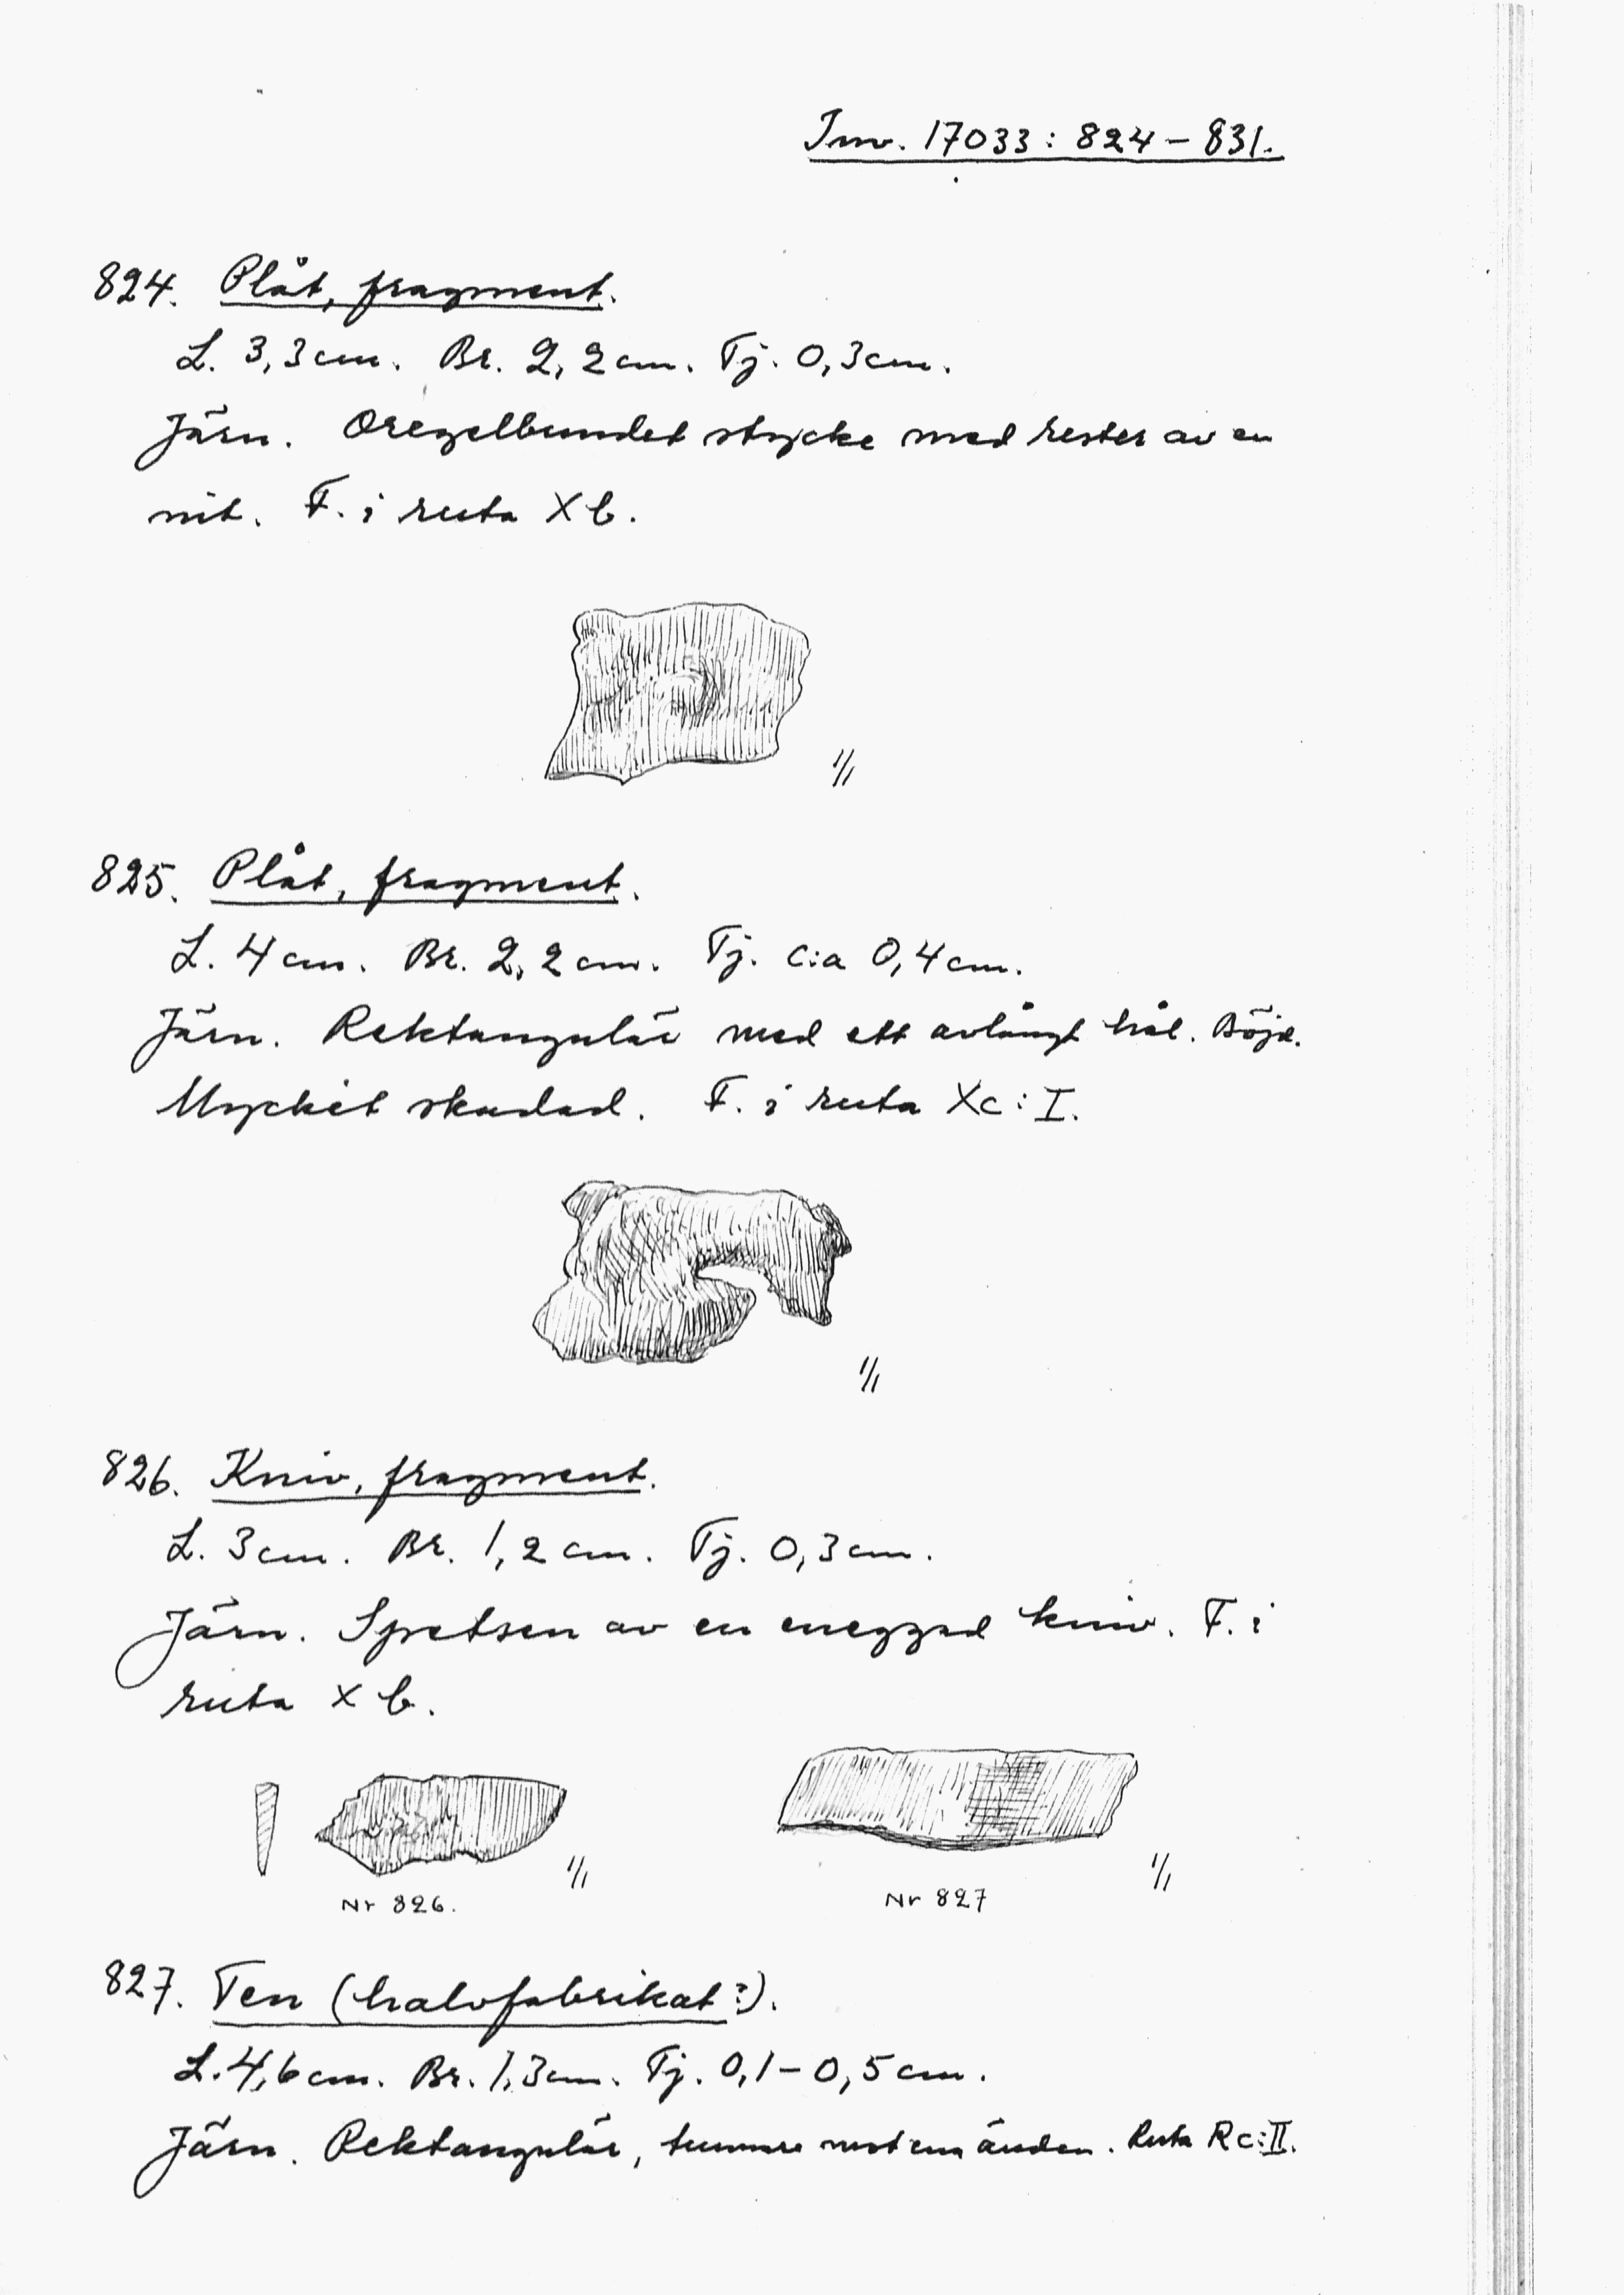 Inv. 17033 : 824 – 831.
824. Plåt, fragment.
L. 3,3 cm. Br. 2,2 cm. Tj. 0,3 cm.
Järn. Oregelbundet stycke med rester av en
nit. F. i ruta Xb.
1/1
825. Plåt, fragment.
L. 4 cm. Br. 2,2 cm. Tj. c:a 0,4 cm.
Järn. Rektangulär med ett avlångt hål. Böjd.
Mycket skadad. F. i ruta Xc:I.
1/1
826. Kniv, fragment.
L. 3 cm. Br. 1,2 cm. Tj. 0,3 cm.
Järn. Spetsen av en eneggad kniv. F. i
ruta Xb.
1/1
Nr 826.
1/1
Nr 827
827. Ten (halvfabrikat?).
L. 4,6 cm. Br. 1,3 cm. Tj. 0,1 – 0,5 cm.
Järn. Rektangulär, tunnare mot ena änden. Ruta Rc:II.